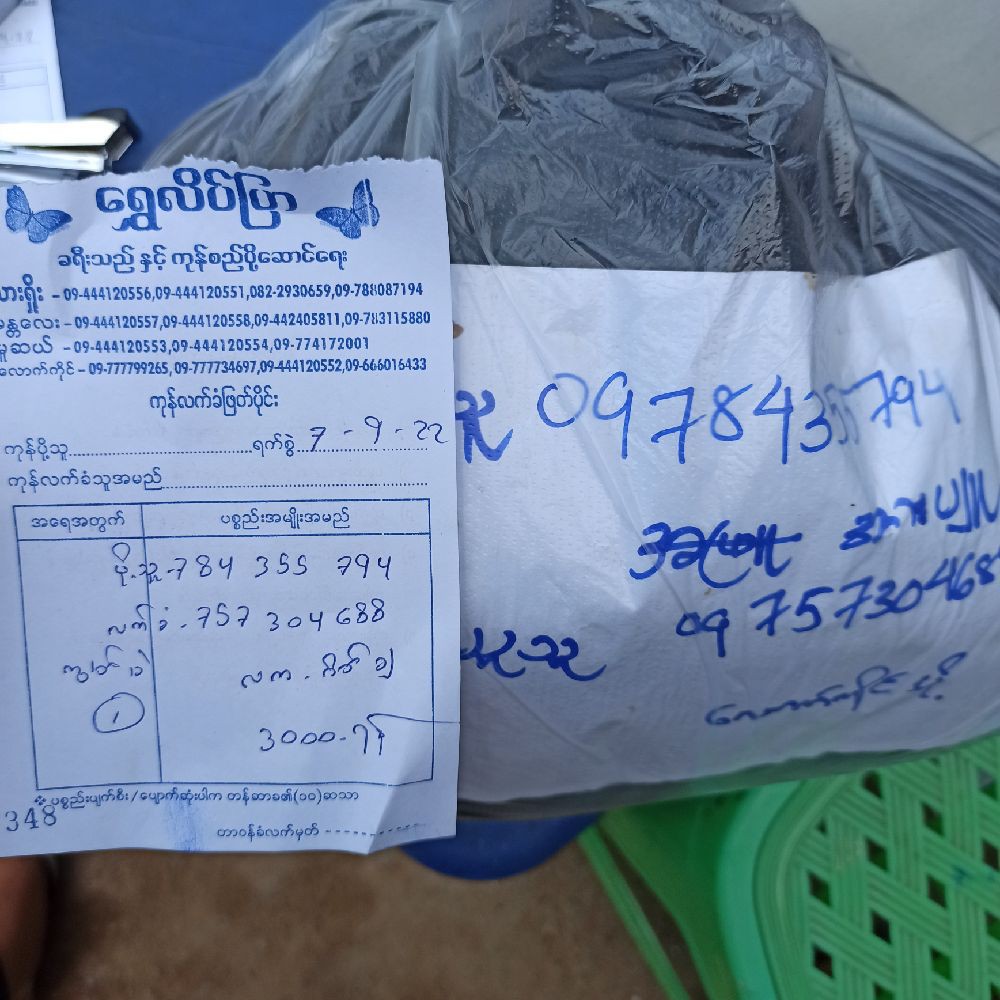 ရွှေလိပ်ပြာ
ခရီးသည် နှင့် ကုန်စည်ပို့ဆောင်ရေး
လားရှိုး – 09-444120556,09-444120551,082-2930659,09-788087194
မန္တလေး – 09-444120557,09-444120558,09-442405811,09-783115880
မူဆယ် – 09-444120553,09-444120554,09-774172001
လောက်ကိုင် – 09-777799265,09-777734697,09-444120552,09-666016433
ကုန်လက်ခံဖြတ်ပိုင်း
ကုန်ပို့သူ ရက်စွဲ 7-9-22
ကုန်လက်ခံသူအမည်
အရေအတွက် ပစ္စည်းအမျိုးအမည်
ပို့သူ-784 355 794
လက်ခံ-757 304 688
ကျွတ် ၁
၁
3000-
*ပစ္စည်းပျက်စီး/ပျောက်ဆုံးပါက တန်ဆာခ၏(၁၀)ဆသာ
348
တာဝန်ခံလက်မှတ်
သူ 09784355794
09 75730468
ယူသူ
လောက်ကိုင်ပို့